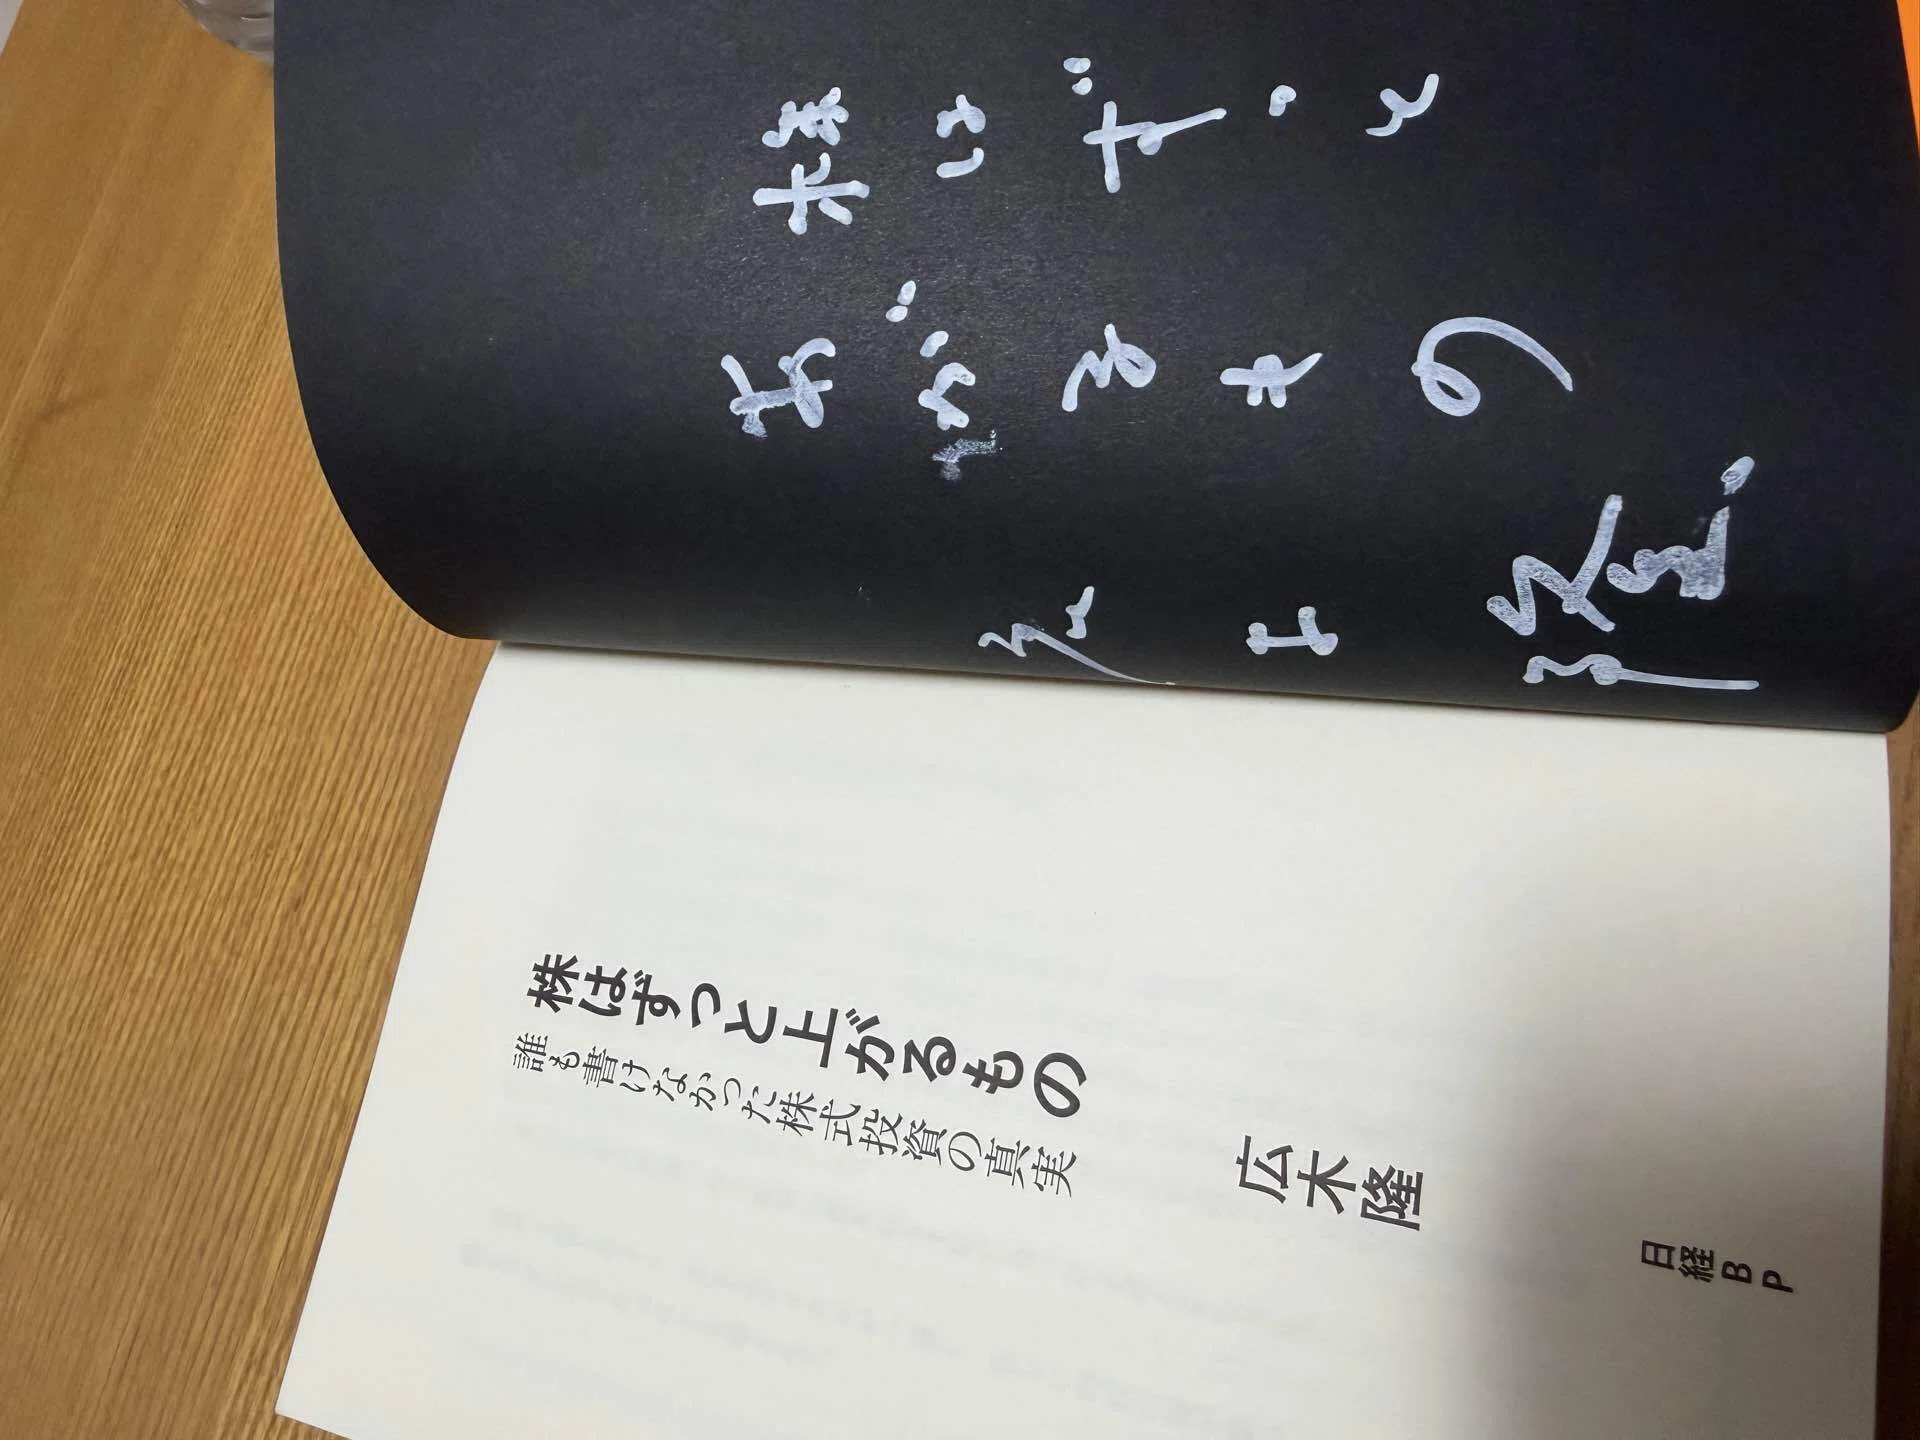 株はずっと
あがるもの
株はずっと上がるもの
誰も書けなかった株式投資の真実
広木隆
日経BP